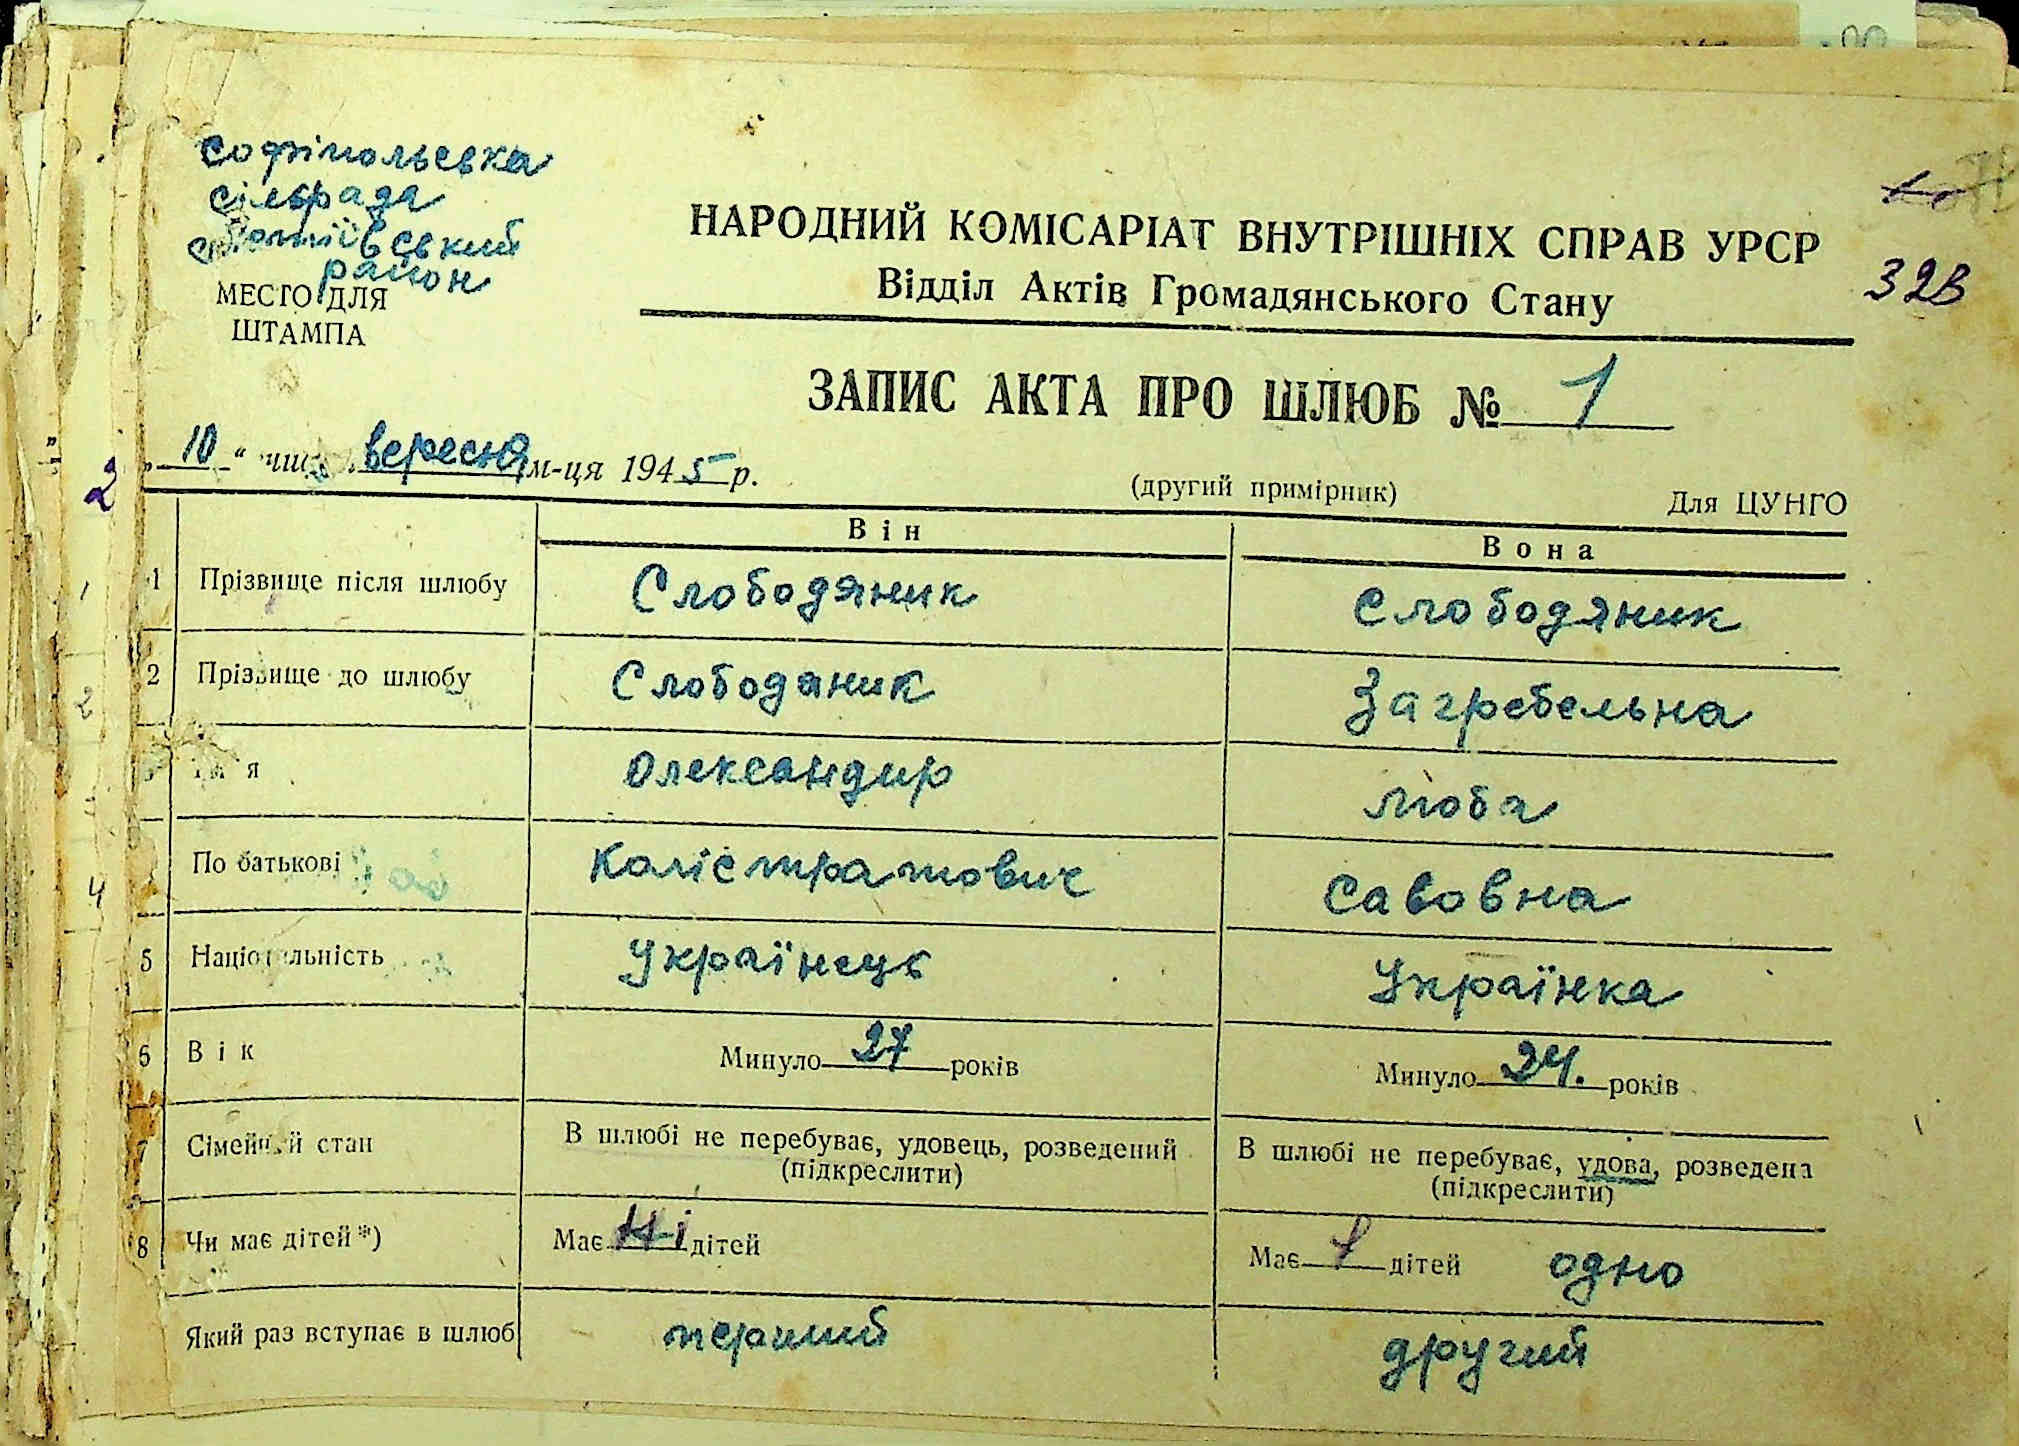 Софіпольська
сільрада
район
МЕСТО ДЛЯ
ШТАМПА
НАРОДНИЙ КОМІСАРІАТ ВНУТРІШНІХ СПРАВ УРСР
Відділ Актів Громадянського Стану
32в
ЗАПИС АКТА ПРО ШЛЮБ № 1
„10“ вересня м-ця 1945 р.
(другий примірник)
Для ЦУНГО
Він Вона
1 Прізвище після шлюбу Слободяник Слободяник
2 Прізвище до шлюбу Слободяник Загребельна
Олександир Люба
По батькові Калістратович Савовна
5 Національність Українець Українка
6 Вік Минуло 27 років Минуло 24. років
7 Сімейний стан В шлюбі не перебуває, удовець, розведений (підкреслити) В шлюбі не перебуває, удова, розведена (підкреслити)
8 Чи має дітей*) Має Ні дітей Має 1 дітей одно
Який раз вступає в шлюб перший другий